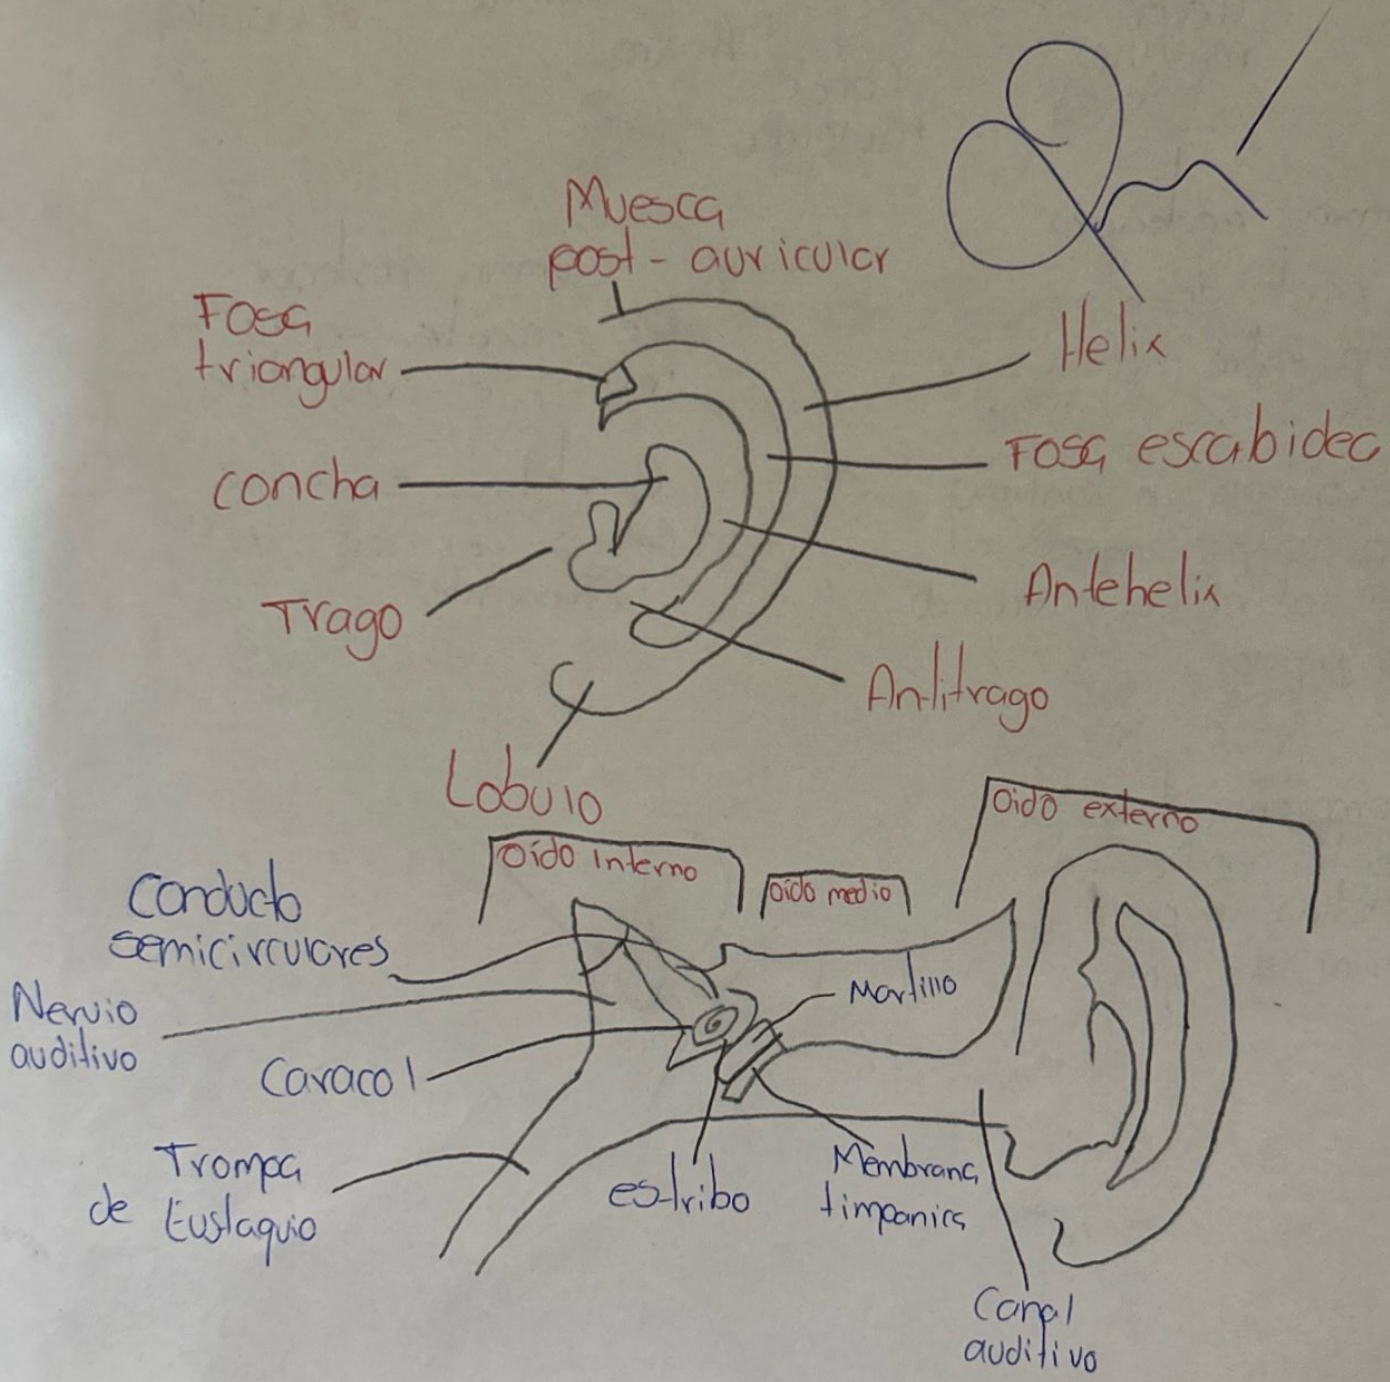 Muesca
post - auricular
Fosa
triangular
Helix
Fosa escabidea
concha
Antehelix
Trago
Antitrago
Lobulo
Oido externo
Oído Interno
Oído medio
Conducto
semicirculares
Martillo
Nervio
auditivo
Caracol
Trompa
de Eustaquio
estribo
Membrana
timpanica
Canal
auditivo